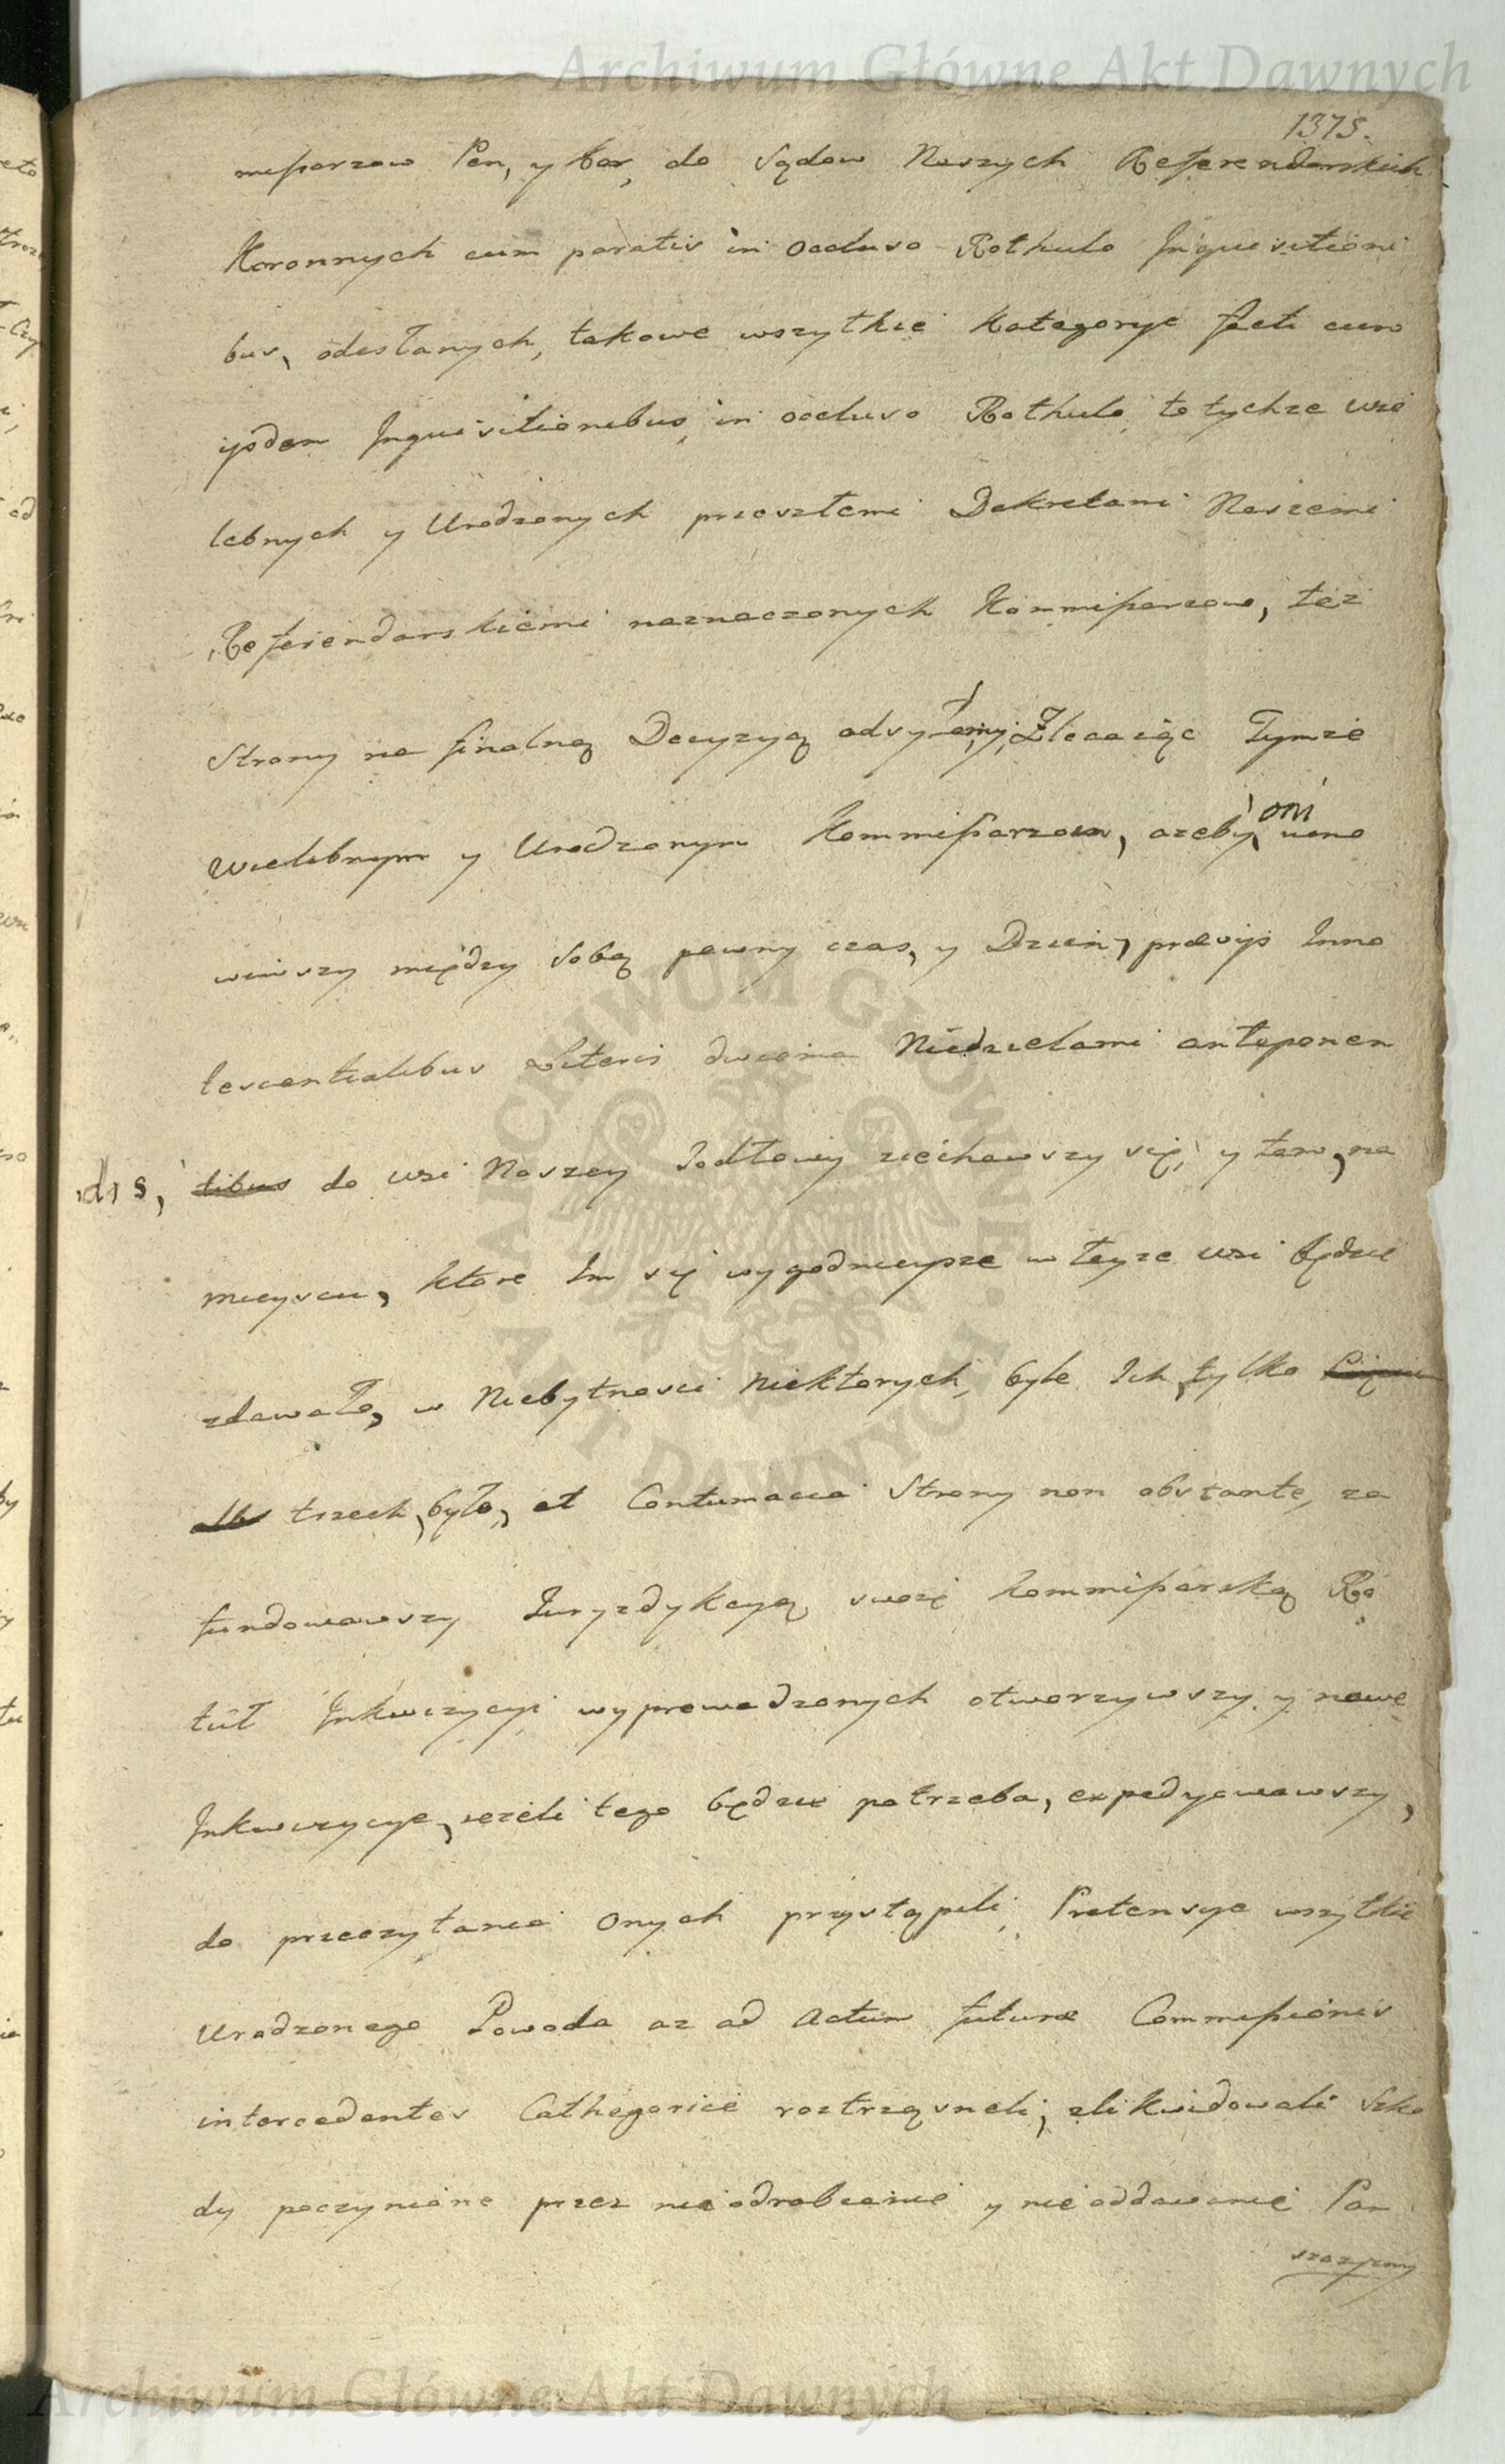 Archiwum Główne Akt Dawnych
1375.
missarzow Pen, y bar, do Sądow Naszych Referendarskich
Koronnych cum paratis in occluso Rothulo Inquisitioni
bus, odesłanych, takowe wszytkie Kategorye facti cum
ijsdem Inquisitionibus in occluso Rothulo, do tychze wie
lebnych y Urodzonych przeszłemi Dekretami Naszemi
Referendarskiemi naznaczonych Kommissarzow, też
Strony na finalną Decyzyą odsyłamy, Zlecaiąc Tymże
Wielebnym y Urodzonym Kommissarzom, ażeby oni umo
wiwszy między Sobą pewny czas, y Dzień, prævijs Inno
tescentialibus Literis dwiema Niedzielami anteponen
dis, tibus do wsi Naszey Jodłowy ziechawszy się, y tam, na
mieyscu, ktore Im się wygodnieysze w teyże wsi będzie
zdawało, w Niebytnosci Niektorych, byle Ich, tylko
trzech, było, et Contumacia Strony non obstante, za
fundowawszy Juryzdykcyą swoię Kommissarską Ro
tuł Inkwizycyi wyprowadzonych otworzywszy, y nowe
Inkwizycye, ieżeli tego będzie potrzeba, expedyowawszy,
do przeczytania Onych przystąpili, Pretensye wszytkie
Urodzonego Powoda aż ad Actum futuræ Commissionis
intercedentes Cathegorice roztrząsneli, zlikwidowali Szko
dy poczynione przez nieodrobienie y nieoddawanie Pan
szczyzny
ARCHIWUM GŁÓWNE AKT DAWNYCH
Archiwum Główne Akt Dawnych